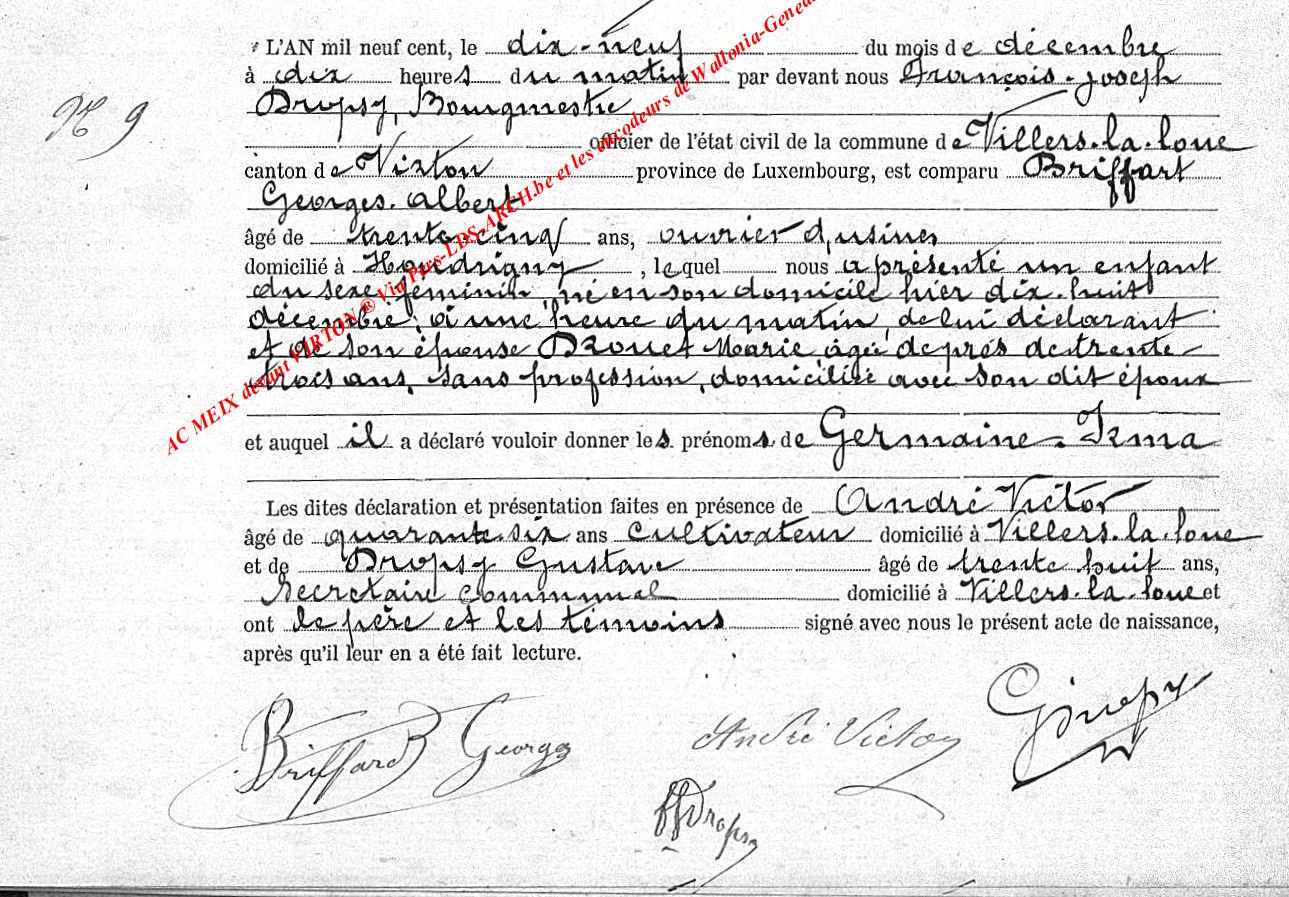 L'AN mil neuf cent, le dix-neuf du mois de décembre
à dix heures du matin par devant nous François-Joseph
Dropsy, Bourgmestre
N° 9
officier de l'état civil de la commune de Villers-la-loue
canton de Virton province de Luxembourg, est comparu Briffart
Georges-Albert
âgé de trente-cinq ans, ouvrier d'usines
domicilié à Houdrigny, lequel nous a présenté un enfant
du sexe féminin, né en son domicile hier dix-huit
décembre, à une heure du matin, de lui déclarant
et de son épouse Drouet Marie, âgée de près de trente-
trois ans, sans profession, domiciliée avec son dit époux
et auquel il a déclaré vouloir donner les prénoms de Germaine-Irma
Les dites déclaration et présentation faites en présence de André Victor
âgé de quarante-six ans cultivateur domicilié à Villers-la-loue
et de Dropsy Gustave âgé de trente huit ans,
secrétaire communal domicilié à Villers-la-loue et
ont le père et les témoins signé avec nous le présent acte de naissance,
après qu'il leur en a été fait lecture.
Briffard Georges André Victor GDropsy
ffDropsy
AC MEIX devant VIRTON ® Via Pics-LDS-ARCH.be et les encodeurs de Wallonia-Genea